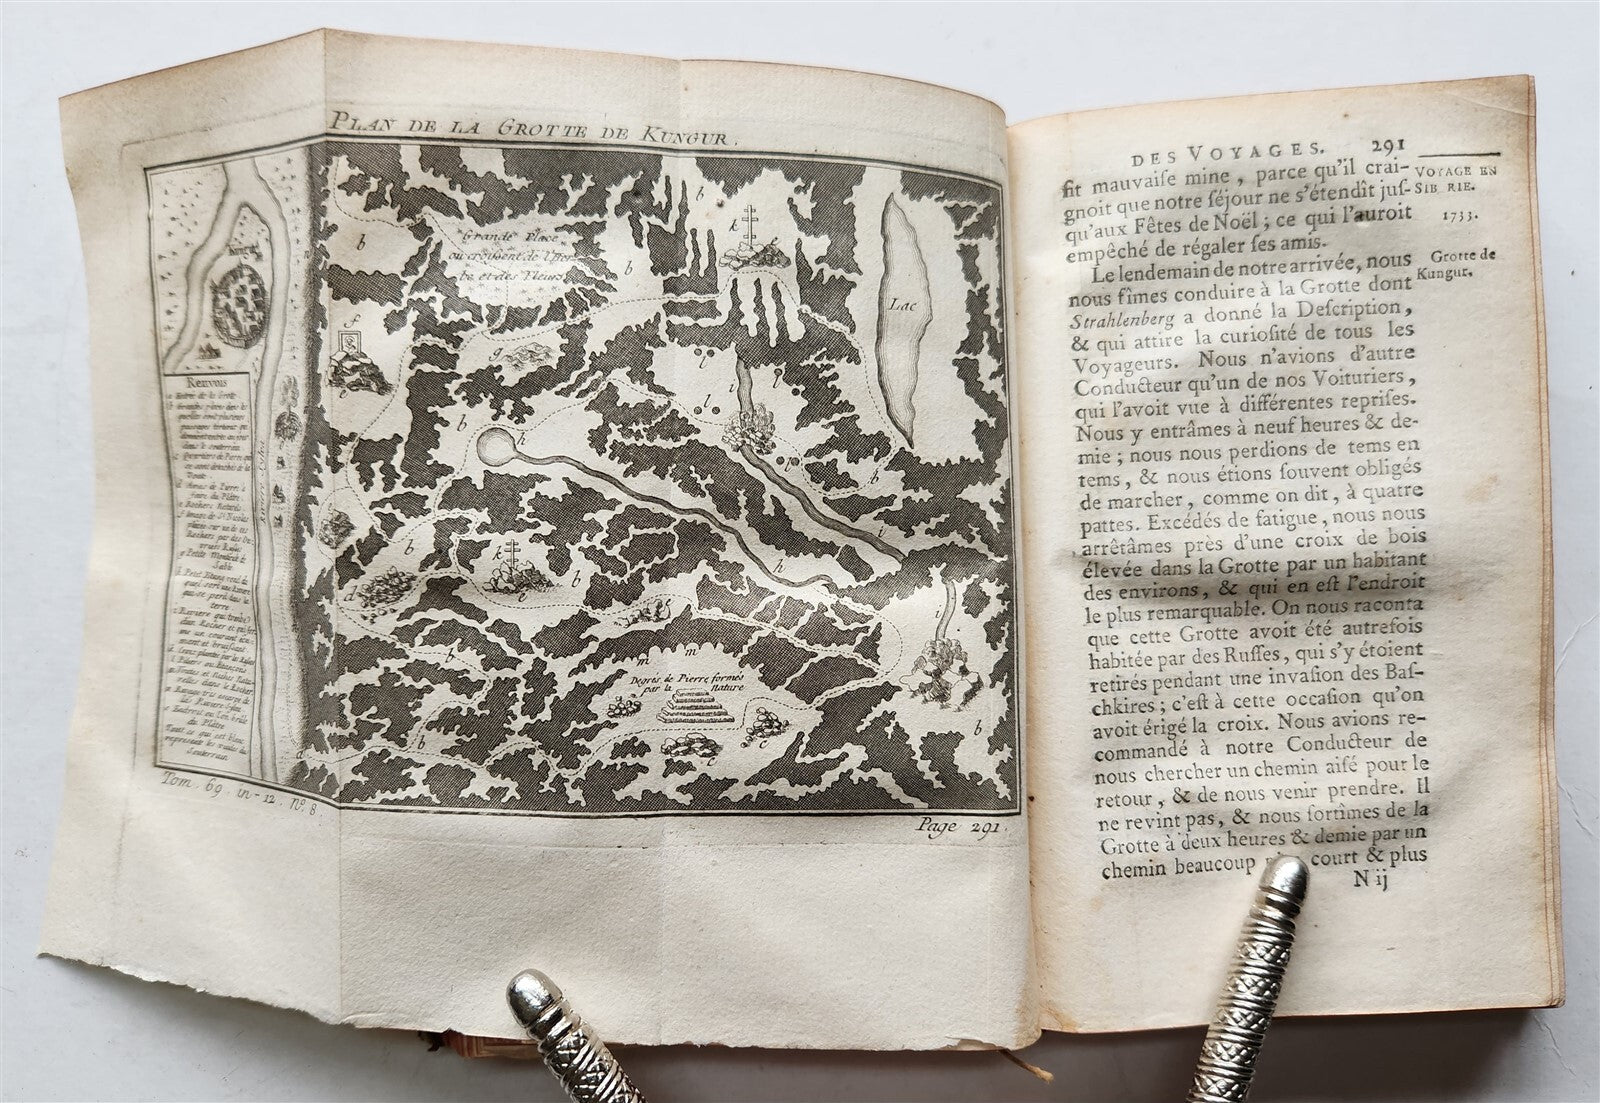 PLAN DE LA GROTTE DE KUNGUR.
Kungur
Grande Place
ou croissent de l'her-
be et des Fleurs
b
b
b
k
f
Lac
f
e
g
b
h
l
l
l
i
i
b
b
k
e
b
d
h
f
i
b
m
m
Degrés de Pierre formés
par la Nature
b
c
c
b
a
Renvois
a Entrée de la Grotte
d Masses de Pierre à
faire du Plâtre
e Rochers
f Images de St. Nicolas
g Petits Monticules de
Sable
h Petit Etang rond du
terre
Souterrain
Tom. 69. in-12. N.° 8.
Page 291.
DES VOYAGES. 291
fit mauvaise mine, parce qu'il crai-
gnoit que notre séjour ne s'étendît jus-
qu'aux Fêtes de Noël; ce qui l'auroit
empêché de régaler ses amis.
VOYAGE EN
SIB RIE.
1733.
Le lendemain de notre arrivée, nous
nous fîmes conduire à la Grotte dont
Grotte de
Kungur.
Strahlenberg a donné la Description,
& qui attire la curiosité de tous les
Voyageurs. Nous n'avions d'autre
Conducteur qu'un de nos Voituriers,
qui l'avoit vue à différentes reprises.
Nous y entrâmes à neuf heures & de-
mie; nous nous perdions de tems en
tems, & nous étions souvent obligés
de marcher, comme on dit, à quatre
pattes. Excédés de fatigue, nous nous
arrêtâmes près d'une croix de bois
élevée dans la Grotte par un habitant
des environs, & qui en est l'endroit
le plus remarquable. On nous raconta
que cette Grotte avoit été autrefois
habitée par des Russes, qui s'y étoient
retirés pendant une invasion des Bas-
chkires; c'est à cette occasion qu'on
avoit érigé la croix. Nous avions re-
commandé à notre Conducteur de
nous chercher un chemin aisé pour le
retour, & de nous venir prendre. Il
ne revint pas, & nous sortîmes de la
Grotte à deux heures & demie par un
chemin beaucoup court & plus
N ij